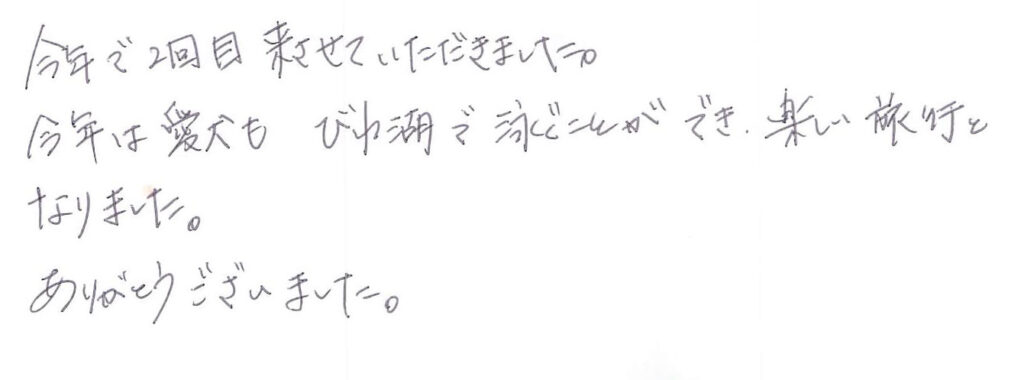 今年で2回目来させていただきました。
今年は愛犬も びわ湖で泳ぐことができ、楽しい旅行と
なりました。
ありがとうございました。